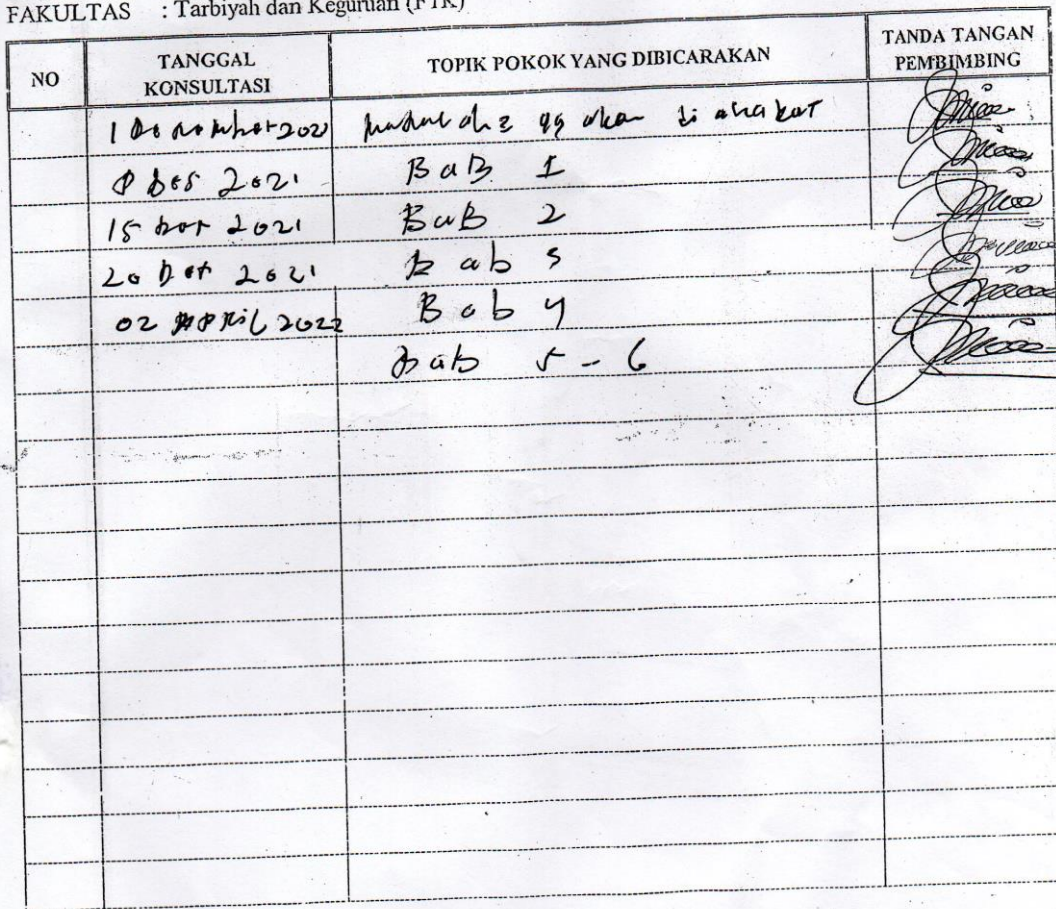 FAKULTAS : Tarbiyah dan Keguruan (FTK)
NO TANGGAL KONSULTASI TOPIK POKOK YANG DIBICARAKAN TANDA TANGAN PEMBIMBING
1 2021 yg akan di
2021 BaB 1
15 2021 BaB 2
20 2021 Bab
02 APRil 2022 Bab 4
Bab 5 - 6